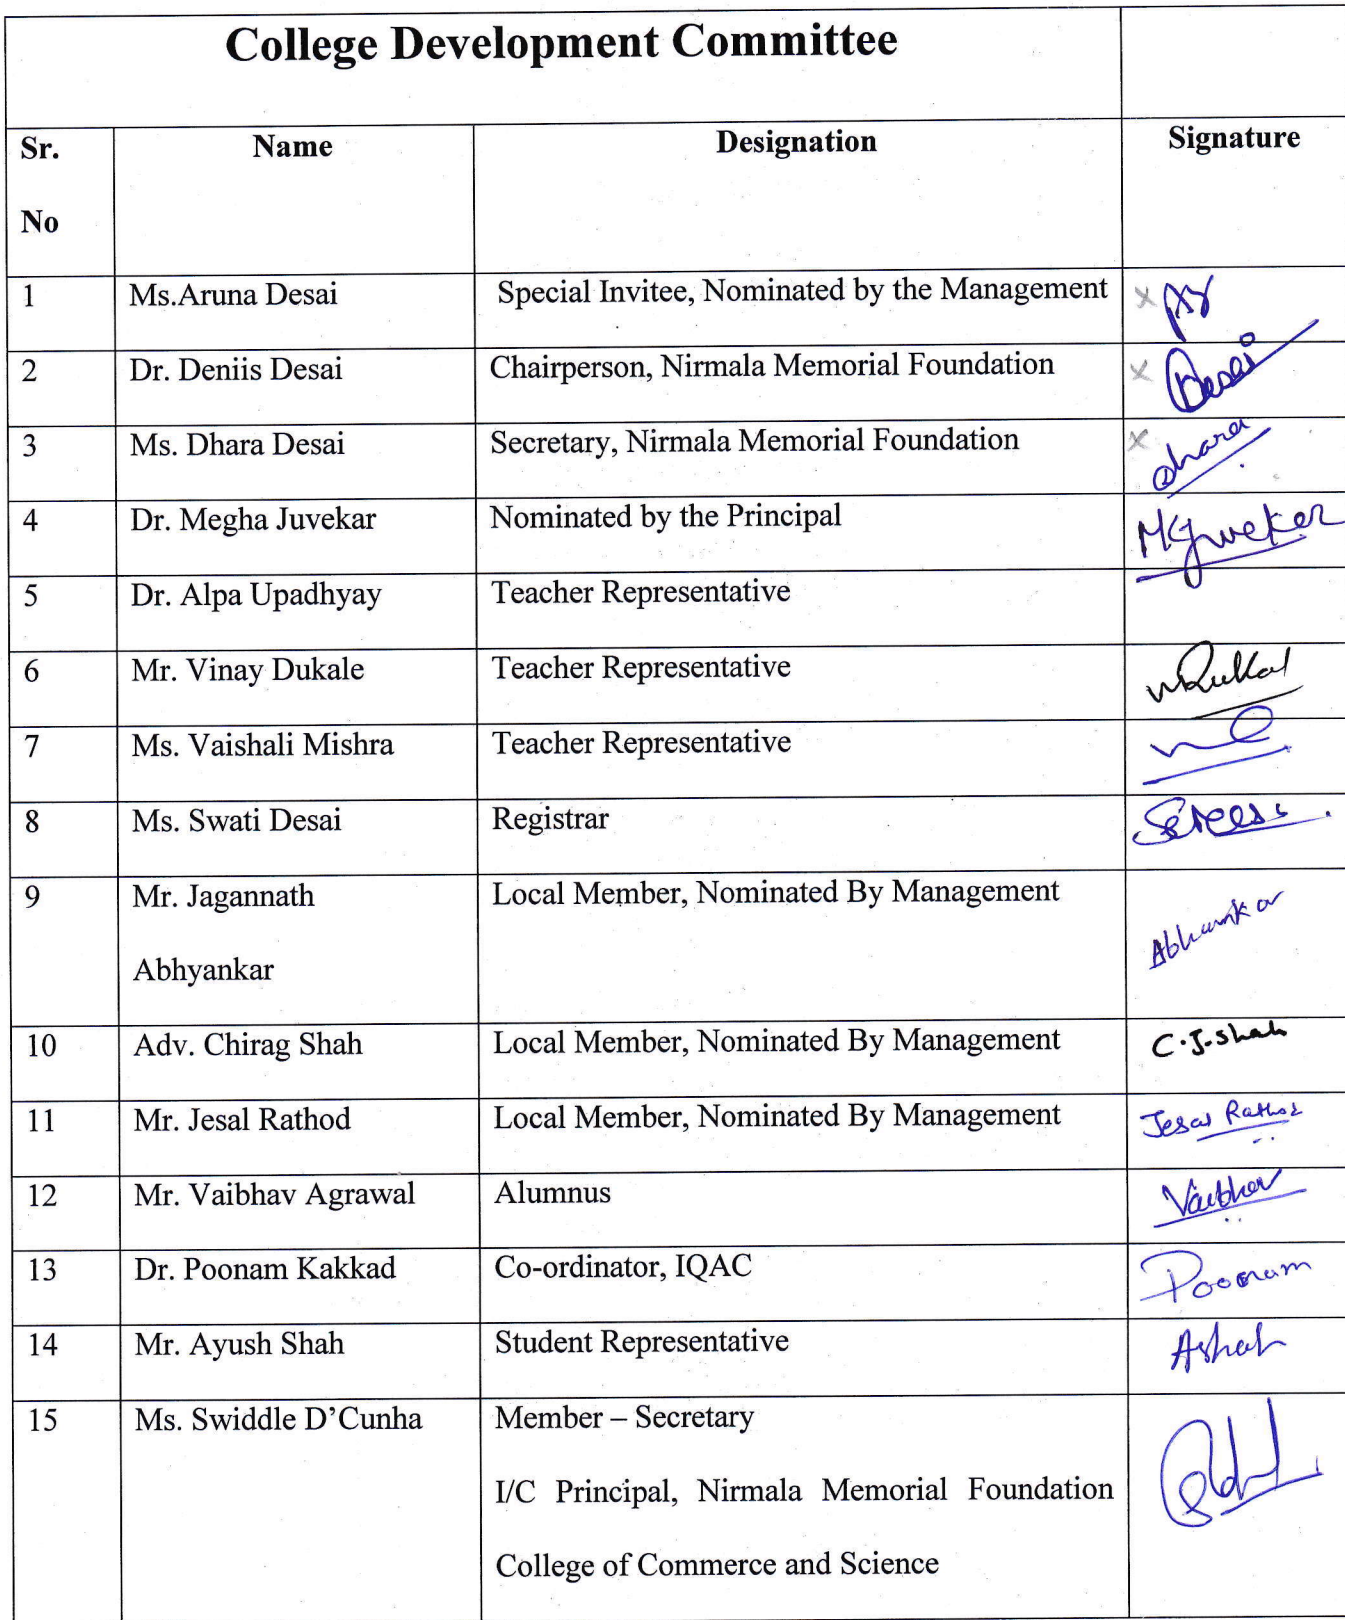 College Development Committee
Sr. No Name Designation Signature
1 Ms.Aruna Desai Special Invitee, Nominated by the Management
2 Dr. Deniis Desai Chairperson, Nirmala Memorial Foundation Desai
3 Ms. Dhara Desai Secretary, Nirmala Memorial Foundation Dhara
4 Dr. Megha Juvekar Nominated by the Principal MGJuveker
5 Dr. Alpa Upadhyay Teacher Representative
6 Mr. Vinay Dukale Teacher Representative
7 Ms. Vaishali Mishra Teacher Representative
8 Ms. Swati Desai Registrar
9 Mr. Jagannath Local Member, Nominated By Management
Abhyankar
10 Adv. Chirag Shah Local Member, Nominated By Management C.J.Shah
11 Mr. Jesal Rathod Local Member, Nominated By Management Jesal Rathod
12 Mr. Vaibhav Agrawal Alumnus Vaibhav
13 Dr. Poonam Kakkad Co-ordinator, IQAC Poonam
14 Mr. Ayush Shah Student Representative AShah
15 Ms. Swiddle D’Cunha Member – Secretary
I/C Principal, Nirmala Memorial Foundation
College of Commerce and Science